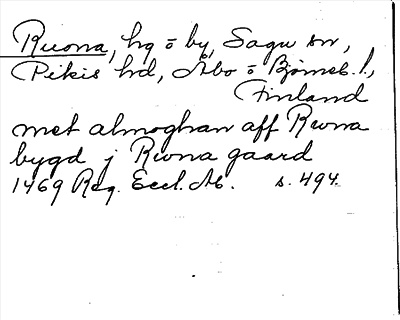 Ruona, hg o by, Sagu sn,
Pikis hd, Åbo o Björneb. l.,
Finland
met almoghan aff Rwna
bygd j Rwna gaard
1469 Reg. Eccl. Ab. s. 494.